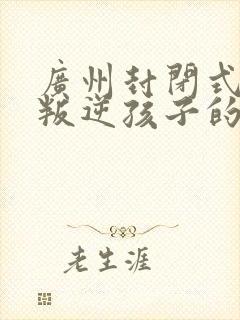 廣州封閉式
叛逆孩子的
老生涯